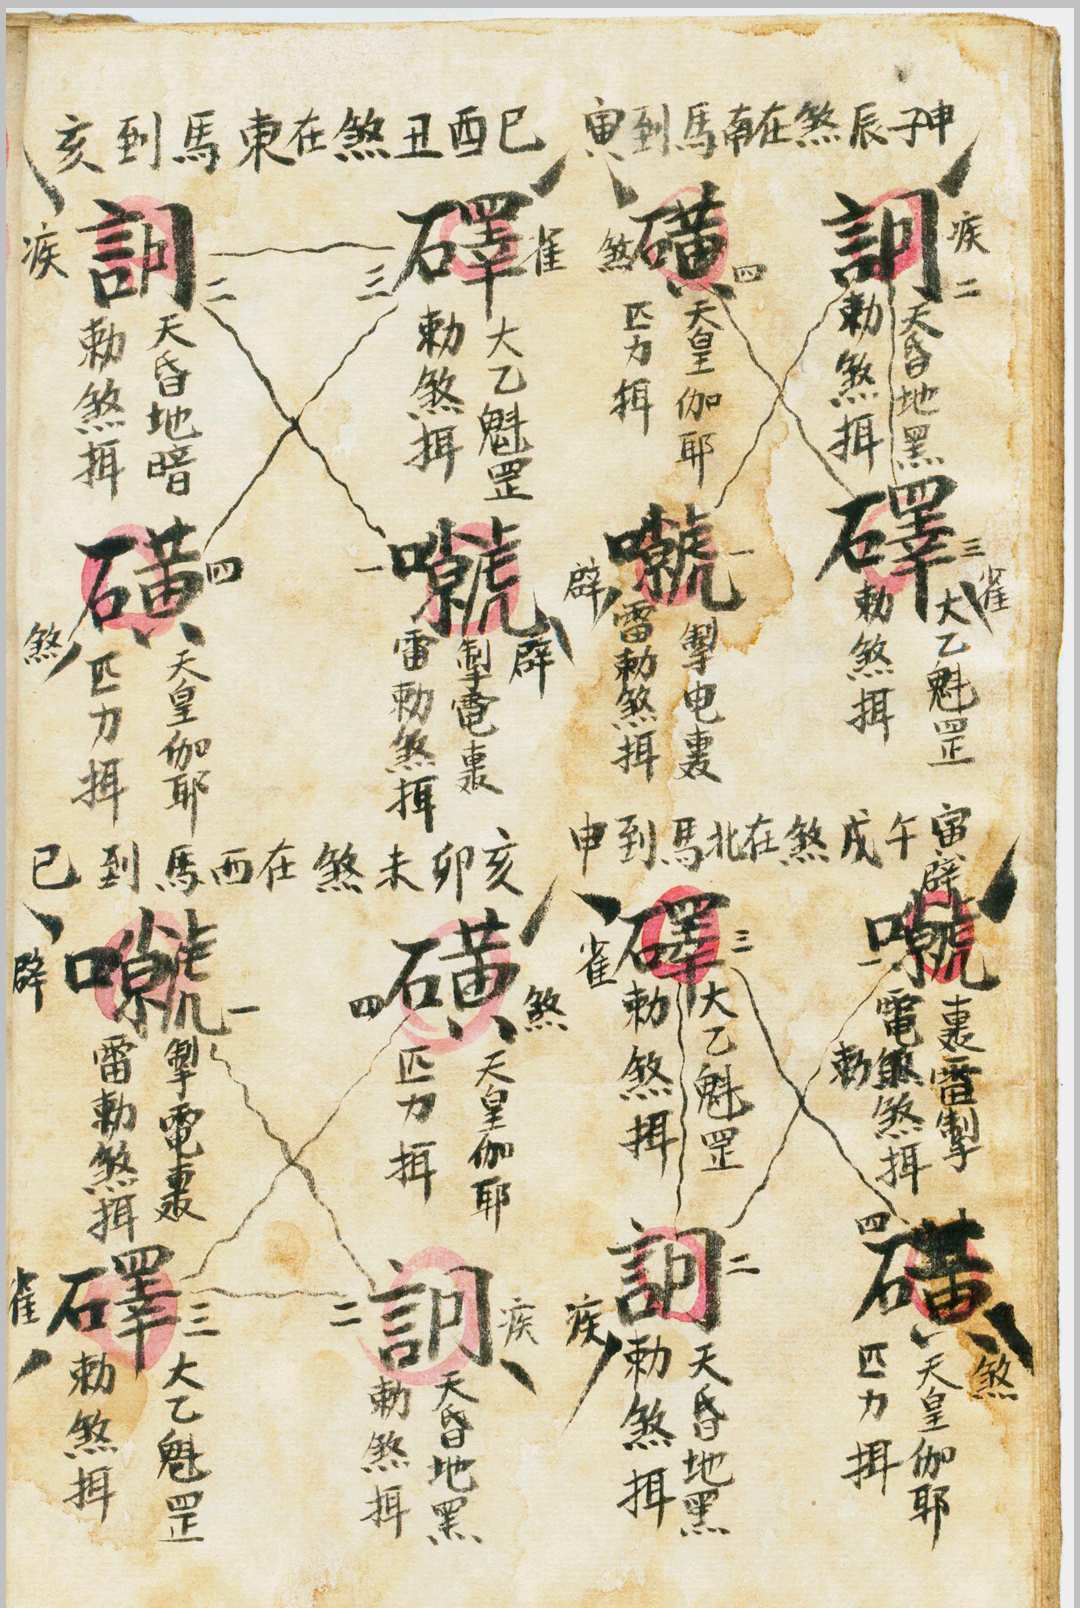 申子辰煞在南馬到寅
疾
二
天昏地黑
勅煞揖
煞
磺
四
天皇伽耶
匹力揖
三
雀
大乙魁罡
勅煞揖
辟
一
掣电轟
雷勅煞揖
巳酉丑煞在東馬到亥
雀
三
大乙魁罡
勅煞揖
疾
二
天昏地暗
勅煞揖
辟
一
掣電轟
雷勅煞揖
煞
磺
四
天皇伽耶
匹力揖
寅午戌煞在北馬到申
辟
一
轟雷掣
電勅煞揖
雀
三
大乙魁罡
勅煞揖
煞
磺
四
天皇伽耶
匹力揖
疾
二
天昏地黑
勅煞揖
亥卯未煞在西馬到巳
煞
磺
四
天皇伽耶
匹力揖
辟
一
掣電轟
雷勅煞揖
疾
二
天昏地黑
勅煞揖
雀
三
大乙魁罡
勅煞揖